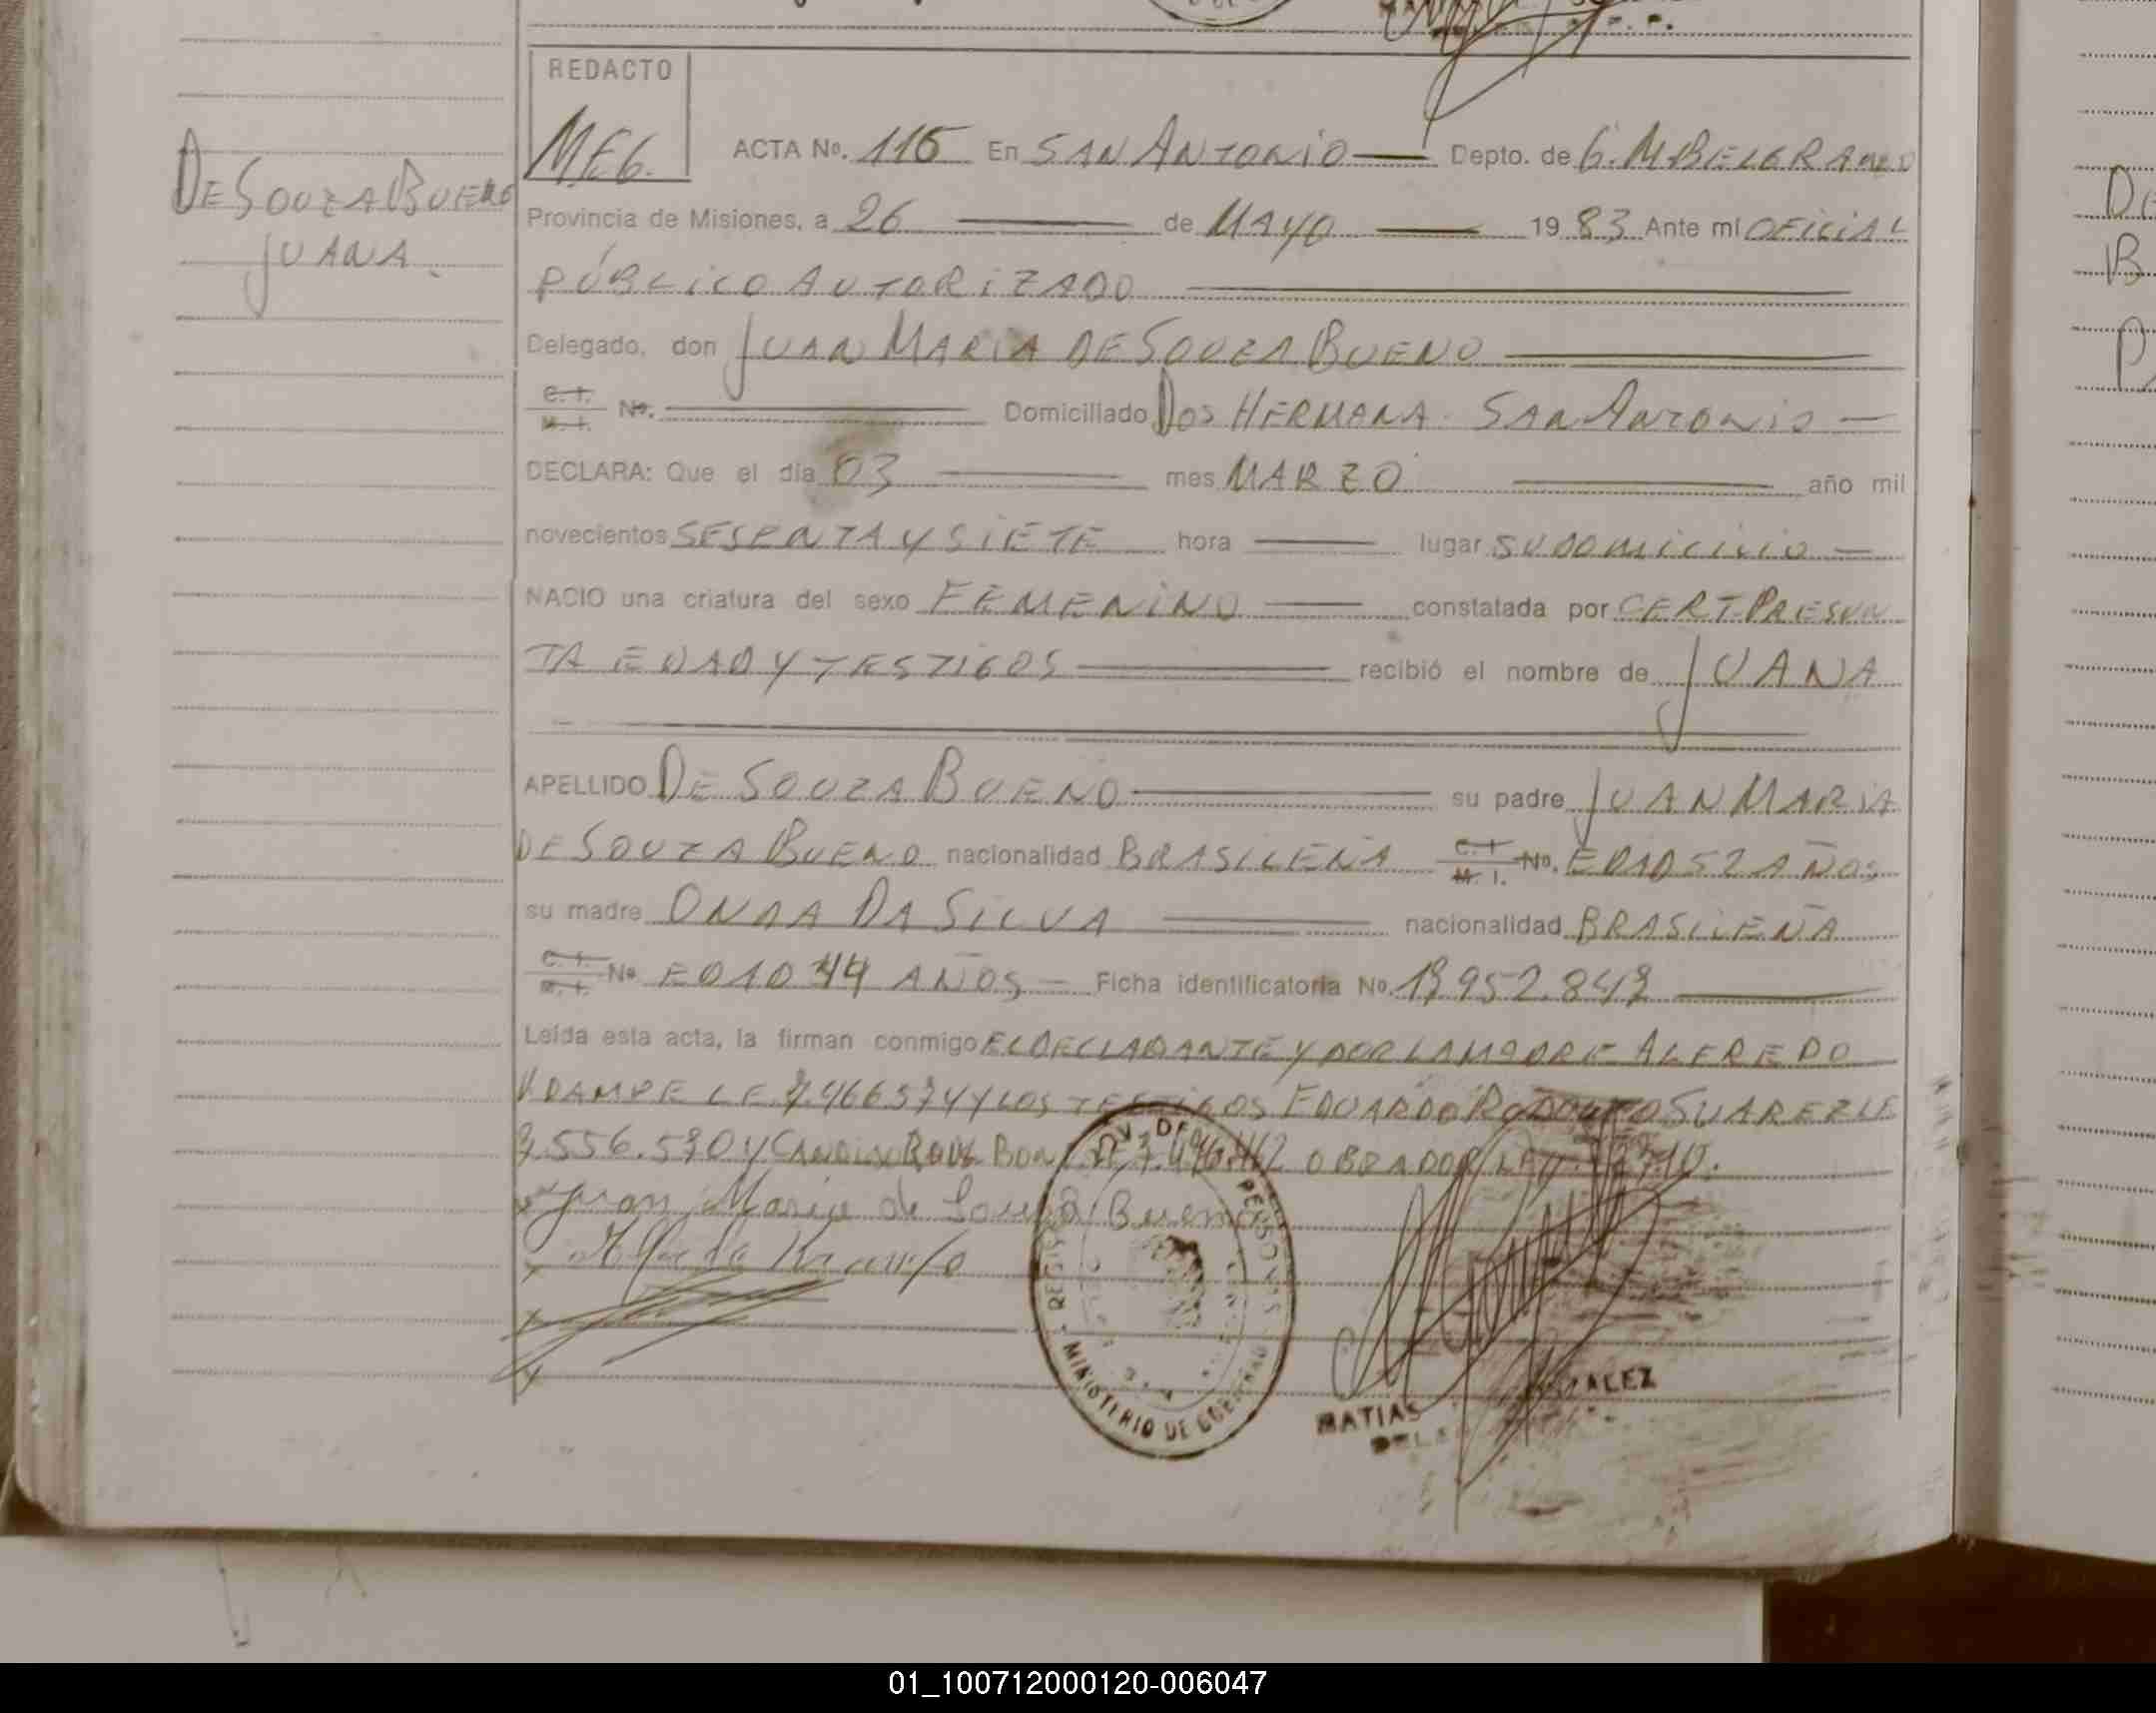 REDACTO
DE SOUZA BUENO
JUANA.
M.E.G.
ACTA No. 116 En SAN ANTONIO Depto. de G. M BELGRANO
Provincia de Misiones, a 26 de MAYO 1983 Ante mí OFICIAL
PÚBLICO AUTORIZADO
Delegado, don JUAN MARIA DE SOUZA BUENO
C. I.
M. I. No. Domiciliado DOS HERMANA. SAN ANTONIO
DECLARA: Que el día 03 mes MARZO año mil
novecientos SESENTA Y SIETE hora lugar SU DOMICILIO
NACIO una criatura del sexo FEMENINO constatada por CERT. PRESUN
TA EDAD Y TESTIGOS recibió el nombre de JUANA
APELLIDO DE SOUZA BUENO su padre JUAN MARIA
DE SOUZA BUENO nacionalidad BRASILEÑA C. I. M. I. No. EDAD 52 AÑOS
su madre DA SILVA nacionalidad BRASILEÑA
C. I. M. I. No EDAD 44 AÑOS Ficha identificatoria No.
Leída esta acta, la firman conmigo EL DECLARANTE Y POR LA MADRE ALFREDO
Y LOS TESTIGOS EDUARDO SUAREZ LE
Juan Maria de Souza Bueno
PERSONAS
MINISTERIO DE
MATIAS
01_100712000120-006047